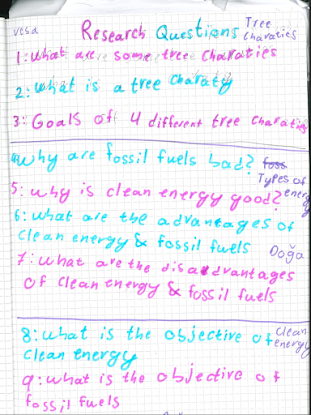 vesa
Research Questions
Tree
Charaties
1: What are some tree charaties
2: what is a tree charaty
3: Goals of 4 different tree charaties
4: why are fossil fuels bad? foss
Types of energy
5: why is clean energy good?
6: what are the advantages of
clean energy & fossil fuels
Doğa
7: what are the disadvantages
of clean energy & fossil fuels
8: what is the objective of
clean energy
Clean
energy
9: what is the objective of
fossil fuels